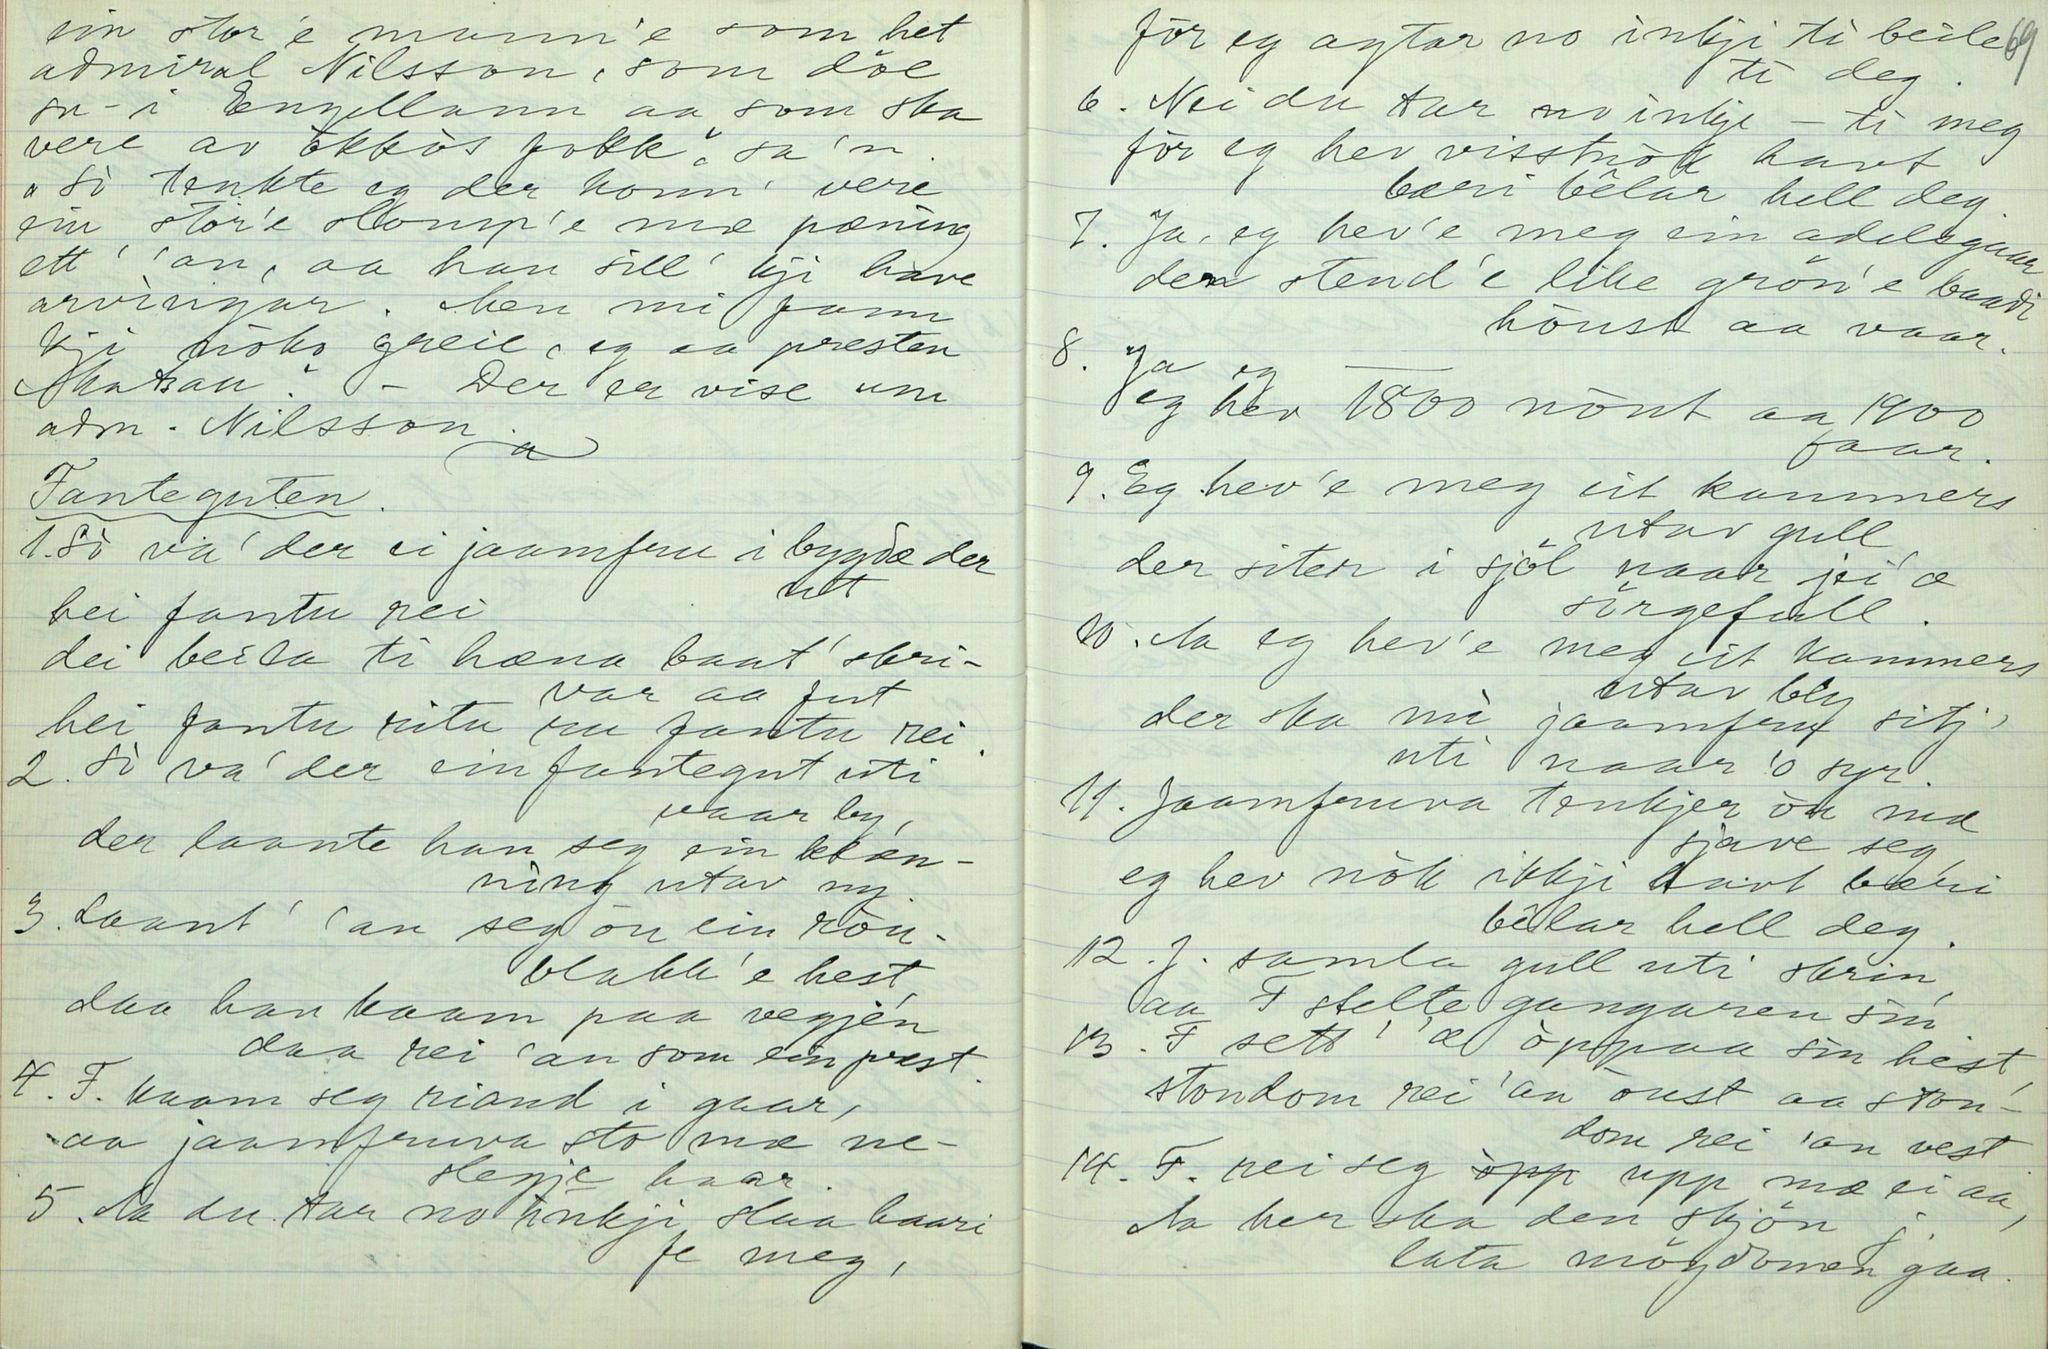 ein stor'e mann'e som het
admiral Nilsson, som döe
su - i Engellann aa som ska
vere av økkòs folk", sa'n.
"Sò tenkte eg der konn' vere
ein stor'e slomp'e mæ pæning
ett' 'an, aa han sill' kji have
arvingar. Men mi fann
kji nòko greie, eg aa presten
Skatsau". - Der er vise um
adm. Nilsson.
Fanteguten.
1. Sò va' der ei jaamfru i bygdæ der
ut
hei fantu rei
dei beila ti hæna baat' skri-
var aa fut
hei fantu ritu ru fantu rei.
2. Sò va' der ein fantegut uti
vaar by,
der laante han seg ein klæn-
ning utav ny
3. Laant' 'an seg òu ein ròu-
blakk'e hest,
daa han kaam paa vegjén
daa rei 'an som ein prest.
4. F. kaam seg riand i gaar,
aa jaamfruva sto mæ ne-
slegje haar.
5. Aa du tar no inkji slaa haari
fe meg,
69
för eg agtar no inkji ti beile
ti deg.
6. Nei du tar no inkje - ti meg
för eg hev visstnòk havt
bæri bêlar hell deg.
7. Ja, eg hev'e meg ein adelsgaar
der stend'e like grön'e baadi
höust aa vaar.
8. Ja eg
eg hev 1800 nöut aa 1900
faar.
9. Eg hev'e meg eit kammers
utav gull
der siter i sjöl naar jei'æ
sörgefull.
10. Aa eg hev'e meg eit kammers
utav bly
der ska mi jaamfru sitj'
uti naar 'o syr.
11. Jaamfruva tenkjer òu mæ
sjave seg,
eg hev nòk ikkji havt bæri
bêlar hell deg.
12. J. samla gull uti skrin,
aa F stelte gangaren sin
13. F sett' 'æ òppaa sin hest,
stondom rei 'an öust aa ston-
dom rei 'an vest.
14. F. rei seg òpp upp mæ ei aa,
Aa her ska den skjön j.
lata möydomen gaa.